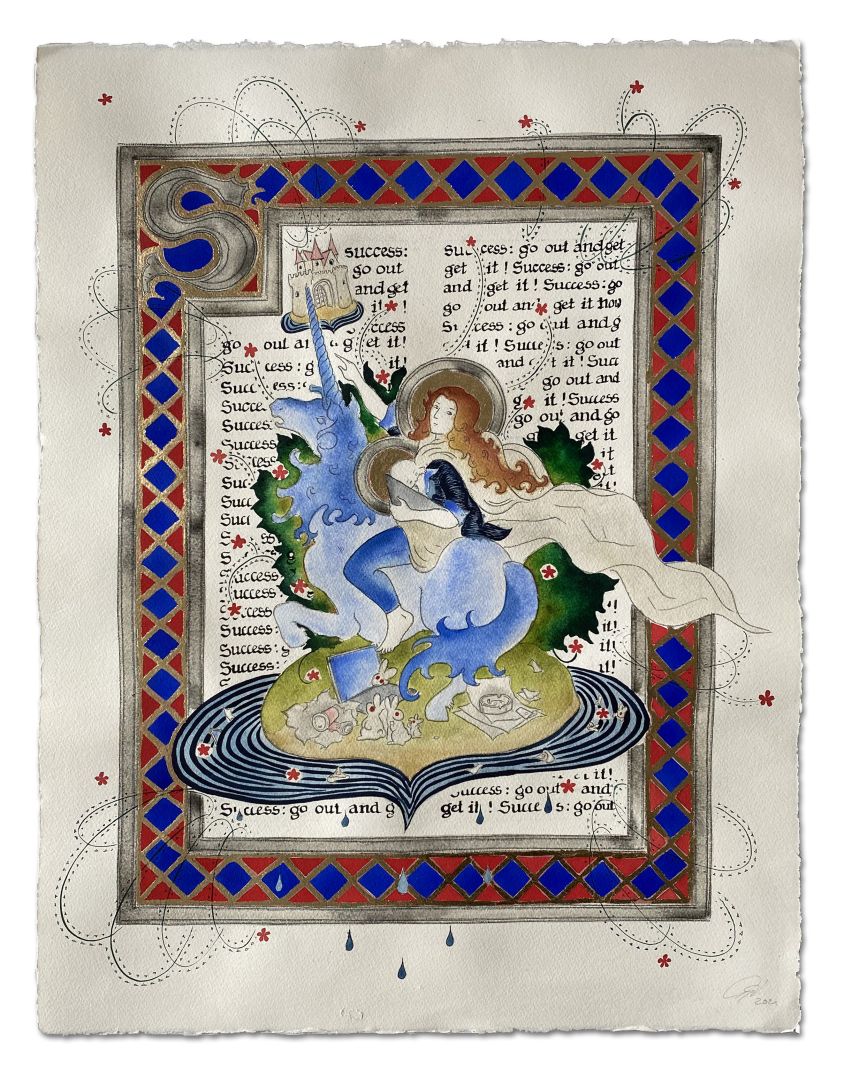 S
success:
go out
and get
it!
ccess
go out an g et it!
Success: it!
Success:
Succe
Succes
Success
Success
Succ
Succ
uccess
uccess
Success
Success:
Success:
Success:
Success: go out and g
Success: go out and get
get it! Success: go out
and get it! Success: go
go out and get it now
Success: go out and g
it! Success: go out
and it! Succ
go out and
it! Success
go out and go
get it
it
it!
it!
it!
go out and
get it! Success: go out
2021